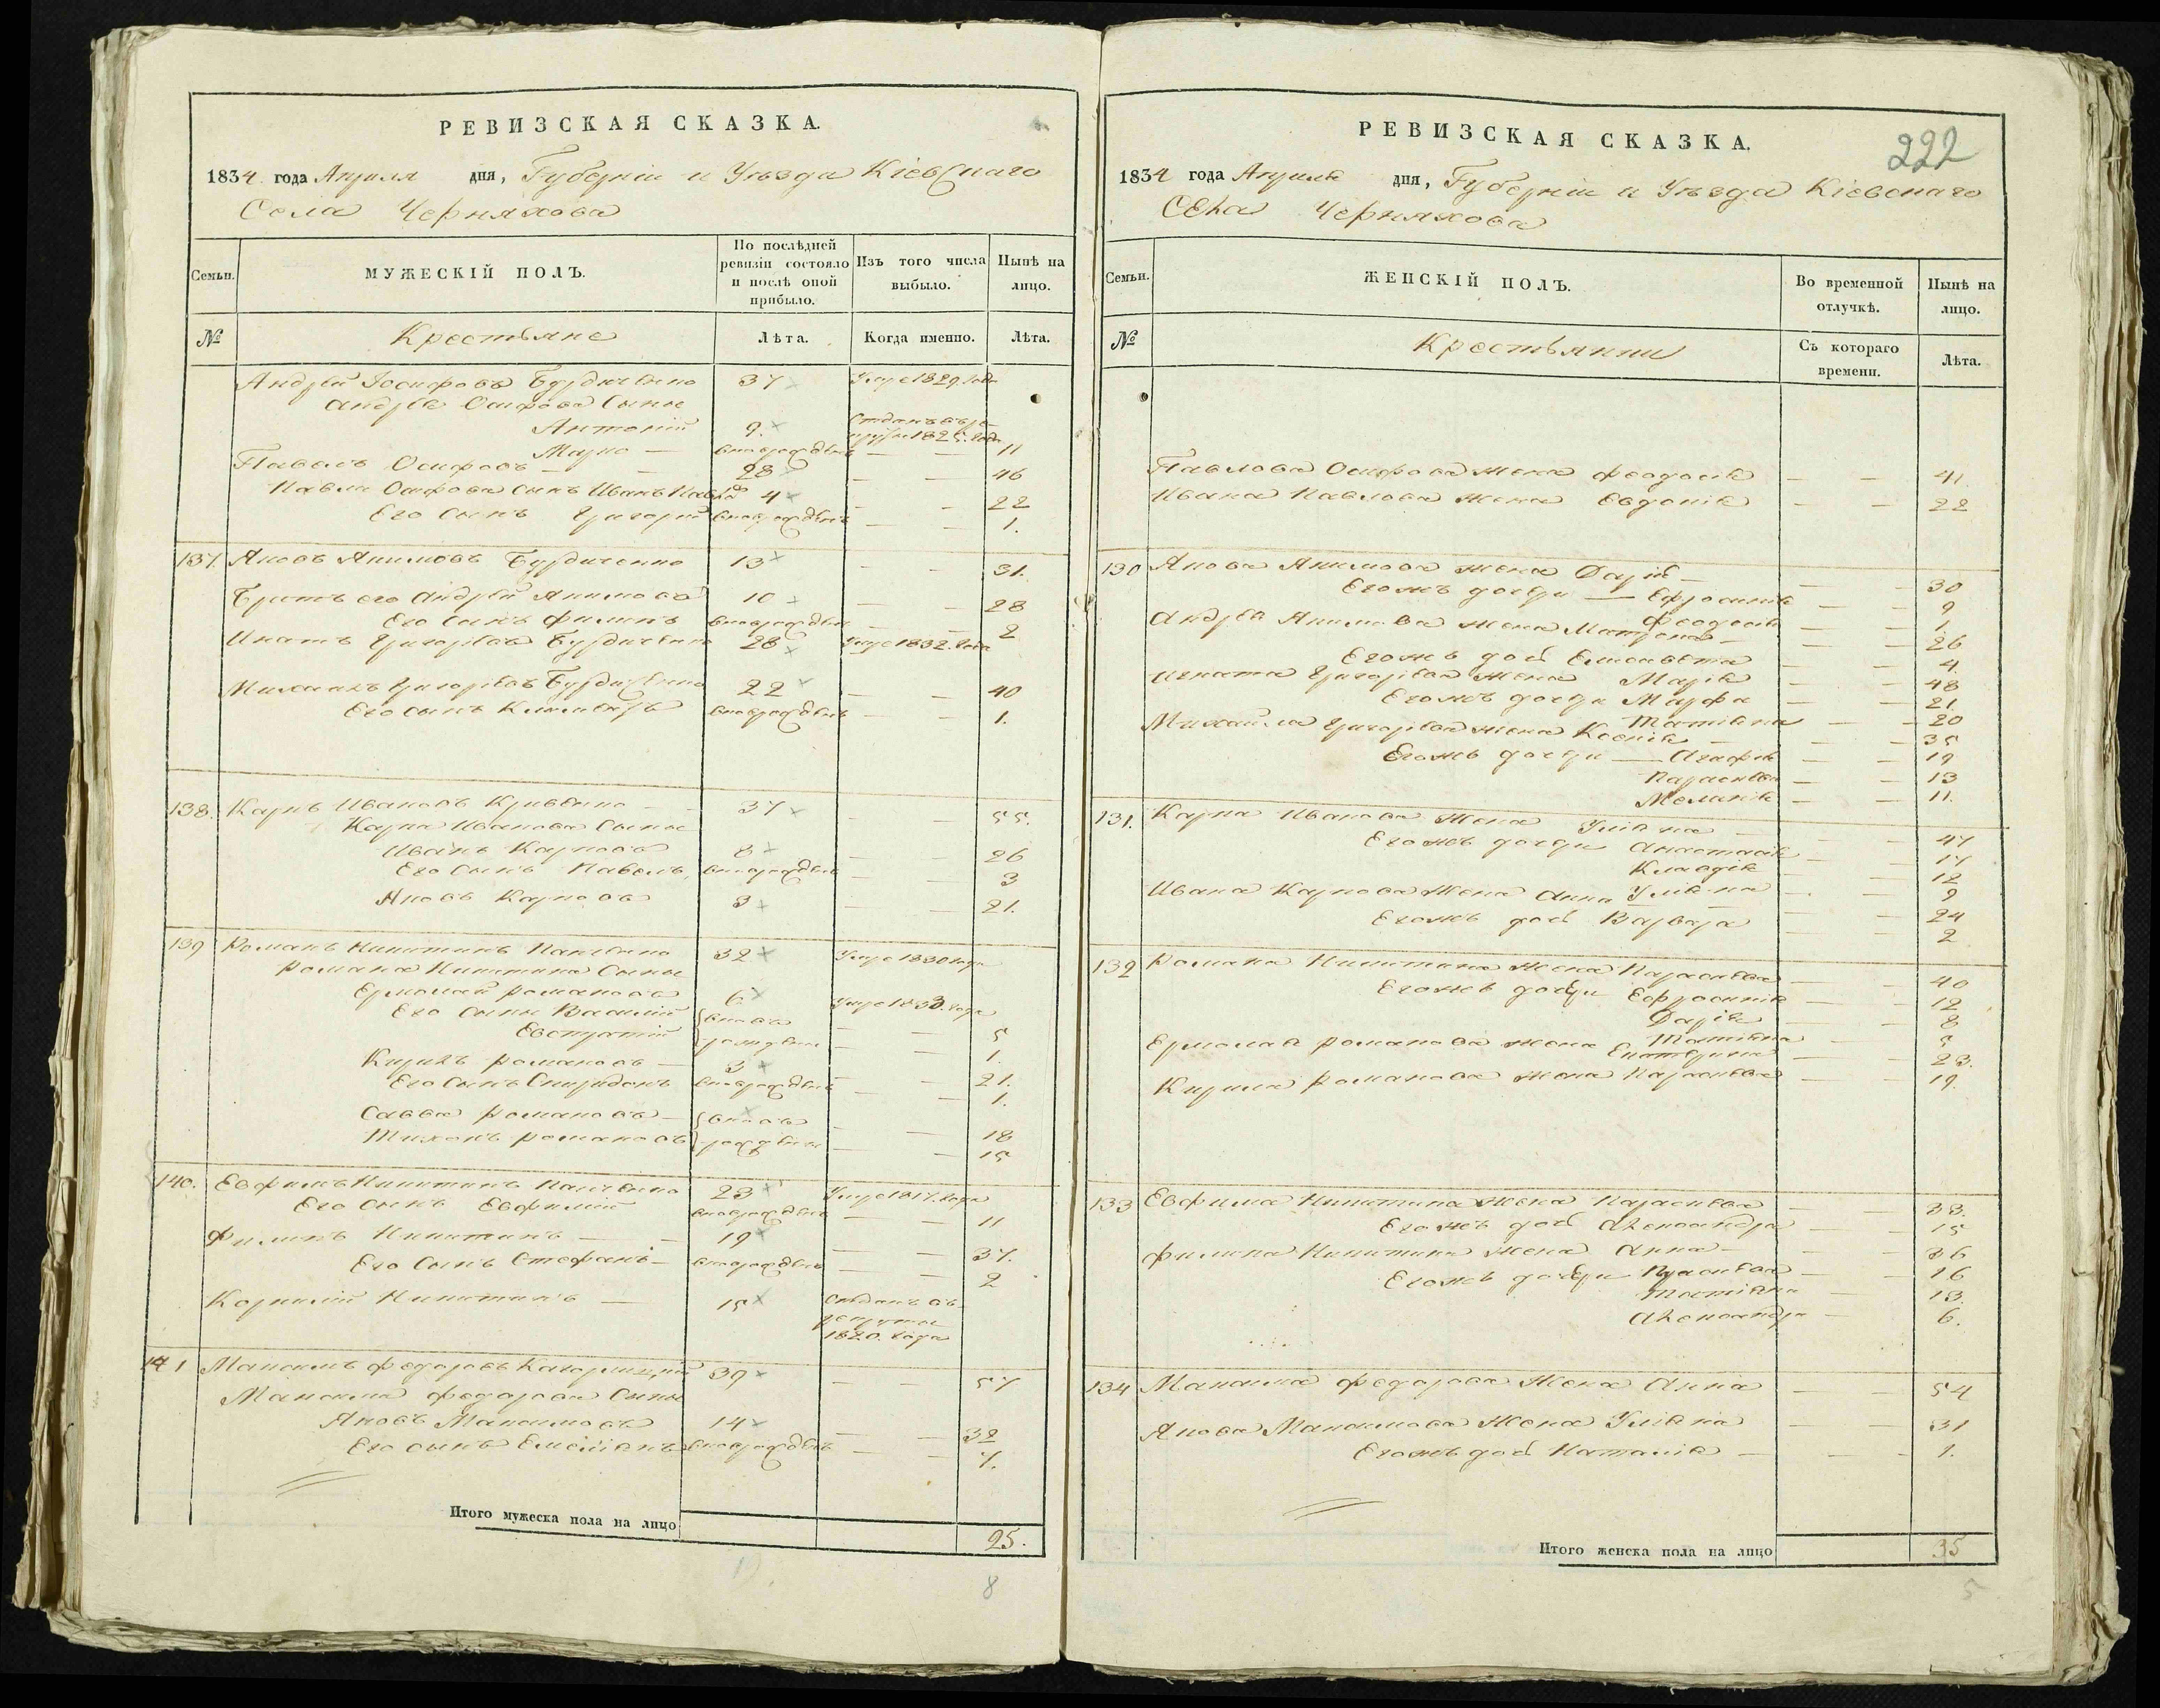 РЕВИЗСКАЯ СКАЗКА.
1834 года Апреля дня, Губерніи и Уезда Кіевскаго
Села Черняхова
Семьи. МУЖЕСКІЙ ПОЛЪ. По послѣдней ревизіи состояло и послѣ оной прибыло. Изъ того числа выбыло. Нынѣ на лицо.
№ Крестьяне Лѣта. Когда именно. Лѣта.
Андрей Іосифовъ 37 Умре 1829 года
Андрея Осифова Сыны
Антоній 9. Отданъ въ рекруты 1825. года
Марко — вноврожденъ — — 11
Павелъ Осифовъ — — 28 — — 46
Павла Осифова Сынъ Иванъ 4 — — 22
Его Сынъ Григорій вноврожденъ — — 1.
137. Яковъ Якимовъ 13 — — 31.
Братъ его Андрей Якимовъ 10 — — 28
Его Сынъ Филипъ вноврожденъ — — 2
Игнатъ Григорьевъ 28 Умре 1832. года
Михаилъ Григорьевъ 22 — — 40
Его сынъ вноврожденъ — — 1.
138. Карпъ Ивановъ 37 — — 55.
Карпа Иванова Сыны
Иванъ Карповъ 8 — — 26
Его Сынъ Павелъ вноврожденъ — — 3
Яковъ Карповъ 3 — — 21.
139 Романъ Никитинъ 32 Умре 1830 года
Романа Никитина Сыны
Ермолай Романовъ 6 Умре 1833. года
Его Сыны Василій вновь — — 5
Евстратій рожденны — — 1.
Кирилъ Романовъ — 3 — — 21.
Его Сынъ Спиридонъ вноврожденъ — — 1.
Савва Романовъ — вновь — — 18
Тихонъ Романовъ рожденны — — 15
140. Евфимъ Никитинъ 23 Умре 1817. года
Его Сынъ Евфимій вноврожденъ — — 11
Филипъ Никитинъ — — 19 — — 37.
Его Сынъ Стефанъ — вноврожденъ — — 2
Корнилій Никитинъ — 15 Отданъ въ рекруты 1820. года
141 Максимъ Федоровъ 39 — — 57
Максима Федорова Сыны
Яковъ Максимовъ 14 — — 32
Его сынъ Емеліянъ вноврожденъ — — 7.
Итого мужеска пола на лицо 25.
8
РЕВИЗСКАЯ СКАЗКА.
222
1834 года Апреля дня, Губерніи и Уезда Кіевскаго
Села Черняхова
Семьи. ЖЕНСКІЙ ПОЛЪ. Во временной отлучкѣ. Нынѣ на лицо.
№ Крестьянки Съ котораго времени. Лѣта.
Павлова Осифова жена Феодосія — — 41.
Ивана Павлова жена Евдокія — — 22
130 Якова Якимова жена Дарія — — — 30
Егожъ дочери — Ефросинія — — 9
Феодосія — — 1.
Андрея Якимова жена Матрона — — — 26
Егожъ дочь Елисавета — — 4.
Игната Григорьева жена Марія — — 48
Егожъ дочери Марфа — — 21.
Татіяна — — 20
Михайла Григорьева жена Ксенія — — — 35
Егожъ дочери — Агафія — — 19
Параскева — — 13
Меланія — — 11.
131. Карпа Иванова жена Уліяна — — — 47
Егожъ дочери Анастасія — — 17
Клавдія — — 12
Уліяна — — 9
Ивана Карпова жена Анна — — 24
Егожъ дочь Варвара — — 2
132 Романа Никитина жена Параскева — — 40
Егожъ дочери Ефросинія — — 12
Дарія — — 8
Татіяна — — 5
Ермолая Романова жена Екатерина — — 23.
Кирила Романова жена Параскева — — 19.
133 Евфима Никитина жена Параскева — — 33.
Егожъ дочь Александра — — 15
Филипа Никитина жена Анна — — — 36
Егожъ дочери Параскева — — 16
Татіяна — 13.
Александра — 6.
134 Максима Федорова жена Анна — — 54
Якова Максимова жена Уліяна — — 31
Егожъ дочь Наталія — — — 1.
Итого женска пола на лицо 35
5